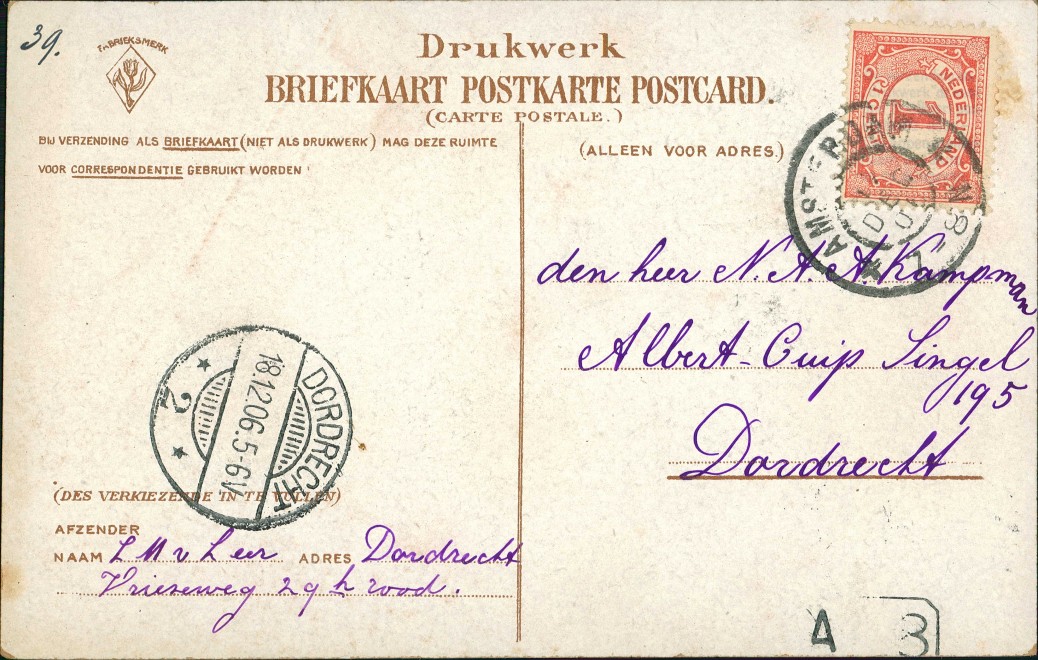 39.
FABRIEKSMERK
Drukwerk
BRIEFKAART POSTKARTE POSTCARD.
(CARTE POSTALE.)
BIJ VERZENDING ALS BRIEFKAART (NIET ALS DRUKWERK) MAG DEZE RUIMTE
VOOR CORRESPONDENTIE GEBRUIKT WORDEN
(ALLEEN VOOR ADRES.)
NEDERLAND
1 CENT 1
1
AMSTERD
DEC
7-8N
den heer N. A. A. Kampman
Albert-Cuip Singel
195
Dordrecht
DORDRECHT
18.12.06.5-6V
2
(DES VERKIEZENDE IN TE VULLEN)
AFZENDER
NAAM L M v Leer ADRES Dordrecht
Vrieseweg 29 h rood.
A 3